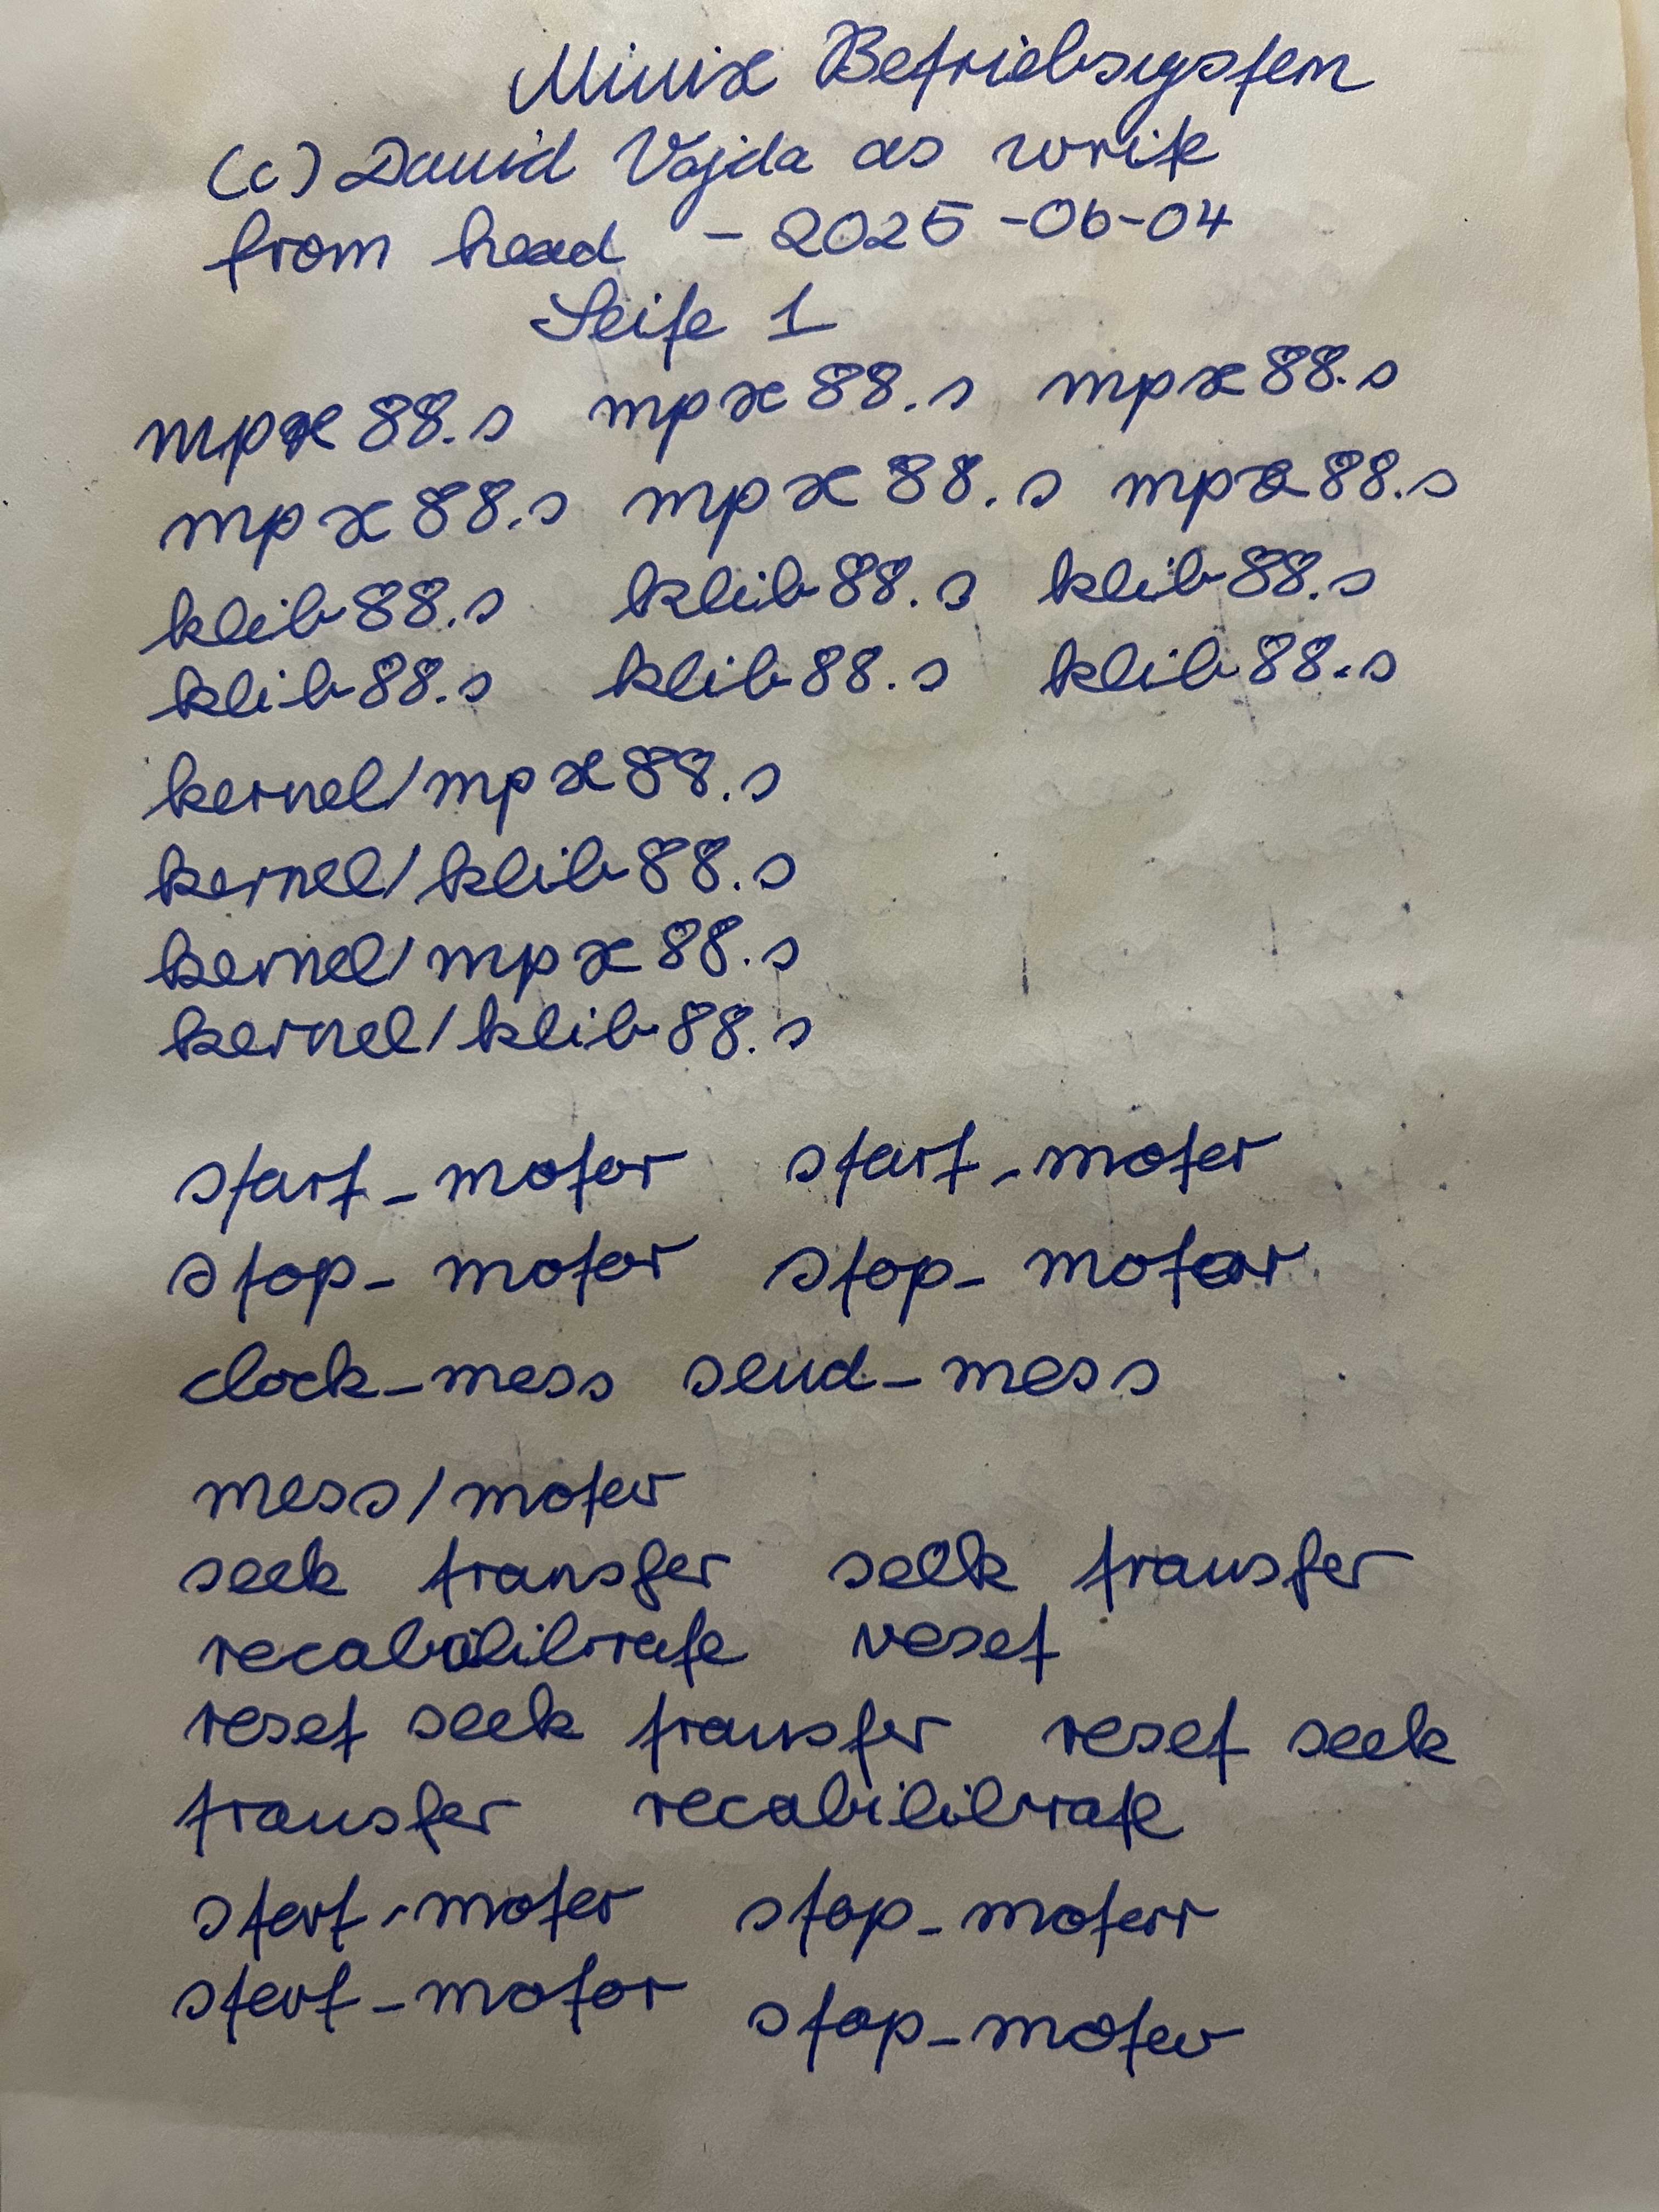 Minix Betriebsystem
(c) David Vajda as write
from head - 2025-06-04
Seite 1
mpx88.s mpx88.s mpx88.s
mpx88.s mpx88.s mpx88.s
klib88.s klib88.s klib88.s
klib88.s klib88.s klib88.s
kernel/mpx88.s
kernel/klib88.s
kernel/mpx88.s
kernel/klib88.s
start_motor start_motor
stop_motor stop_motor
clock_mess send_mess
mess/motor
seek transfer seek transfer
recabilibrate reset
reset seek transfer reset seek
transfer recabililbrate
start_motor stop_motorr
start_motor stop_motor